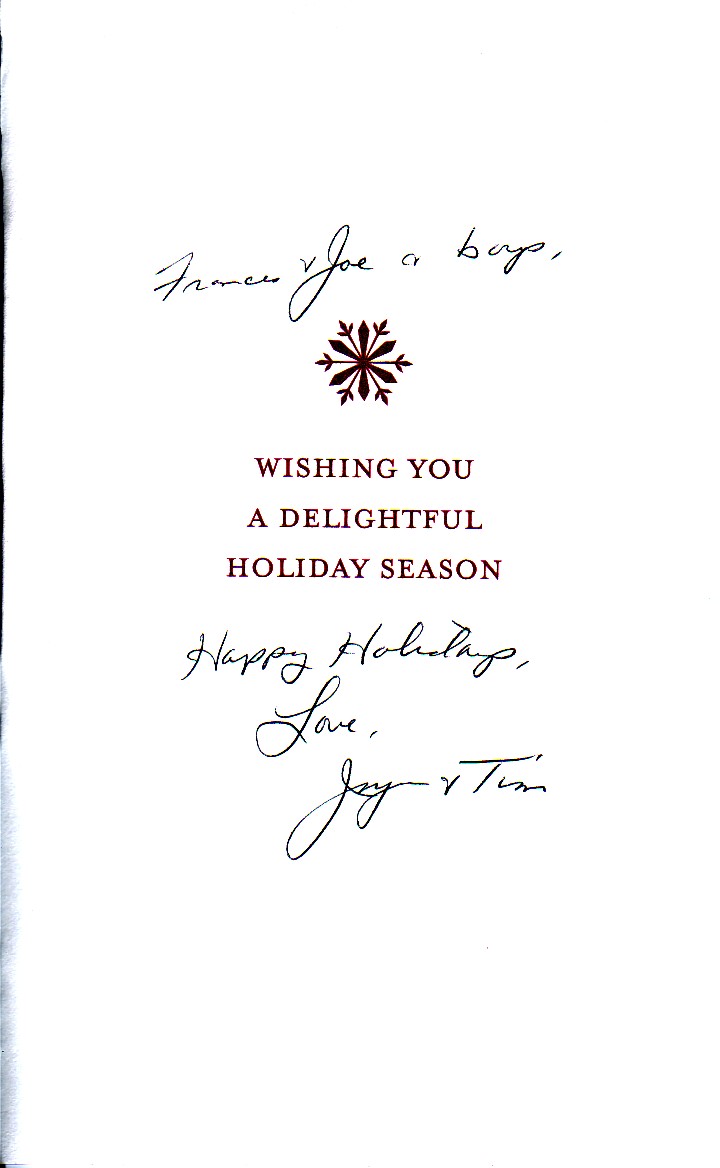 Frances & Joe & boys,
WISHING YOU
A DELIGHTFUL
HOLIDAY SEASON
Happy Holidays,
Love,
& Tim